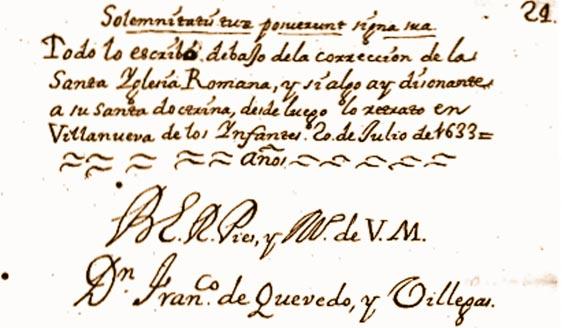 21.
Solemnitatū tuæ posuerunt signa sua
Todo lo escribo debajo de la correccion de la
Santa Yglesia Romana, y si algo ay disonante
a su Santa doctrina, desde luego lo retrato en
Villanueva de los Ynfantes. 20. de Julio de 1633=
años
B. L. R. Pies, y M.ˢ de V. M.
Dⁿ Fran.ᶜᵒ de Quevedo, y Villegas.